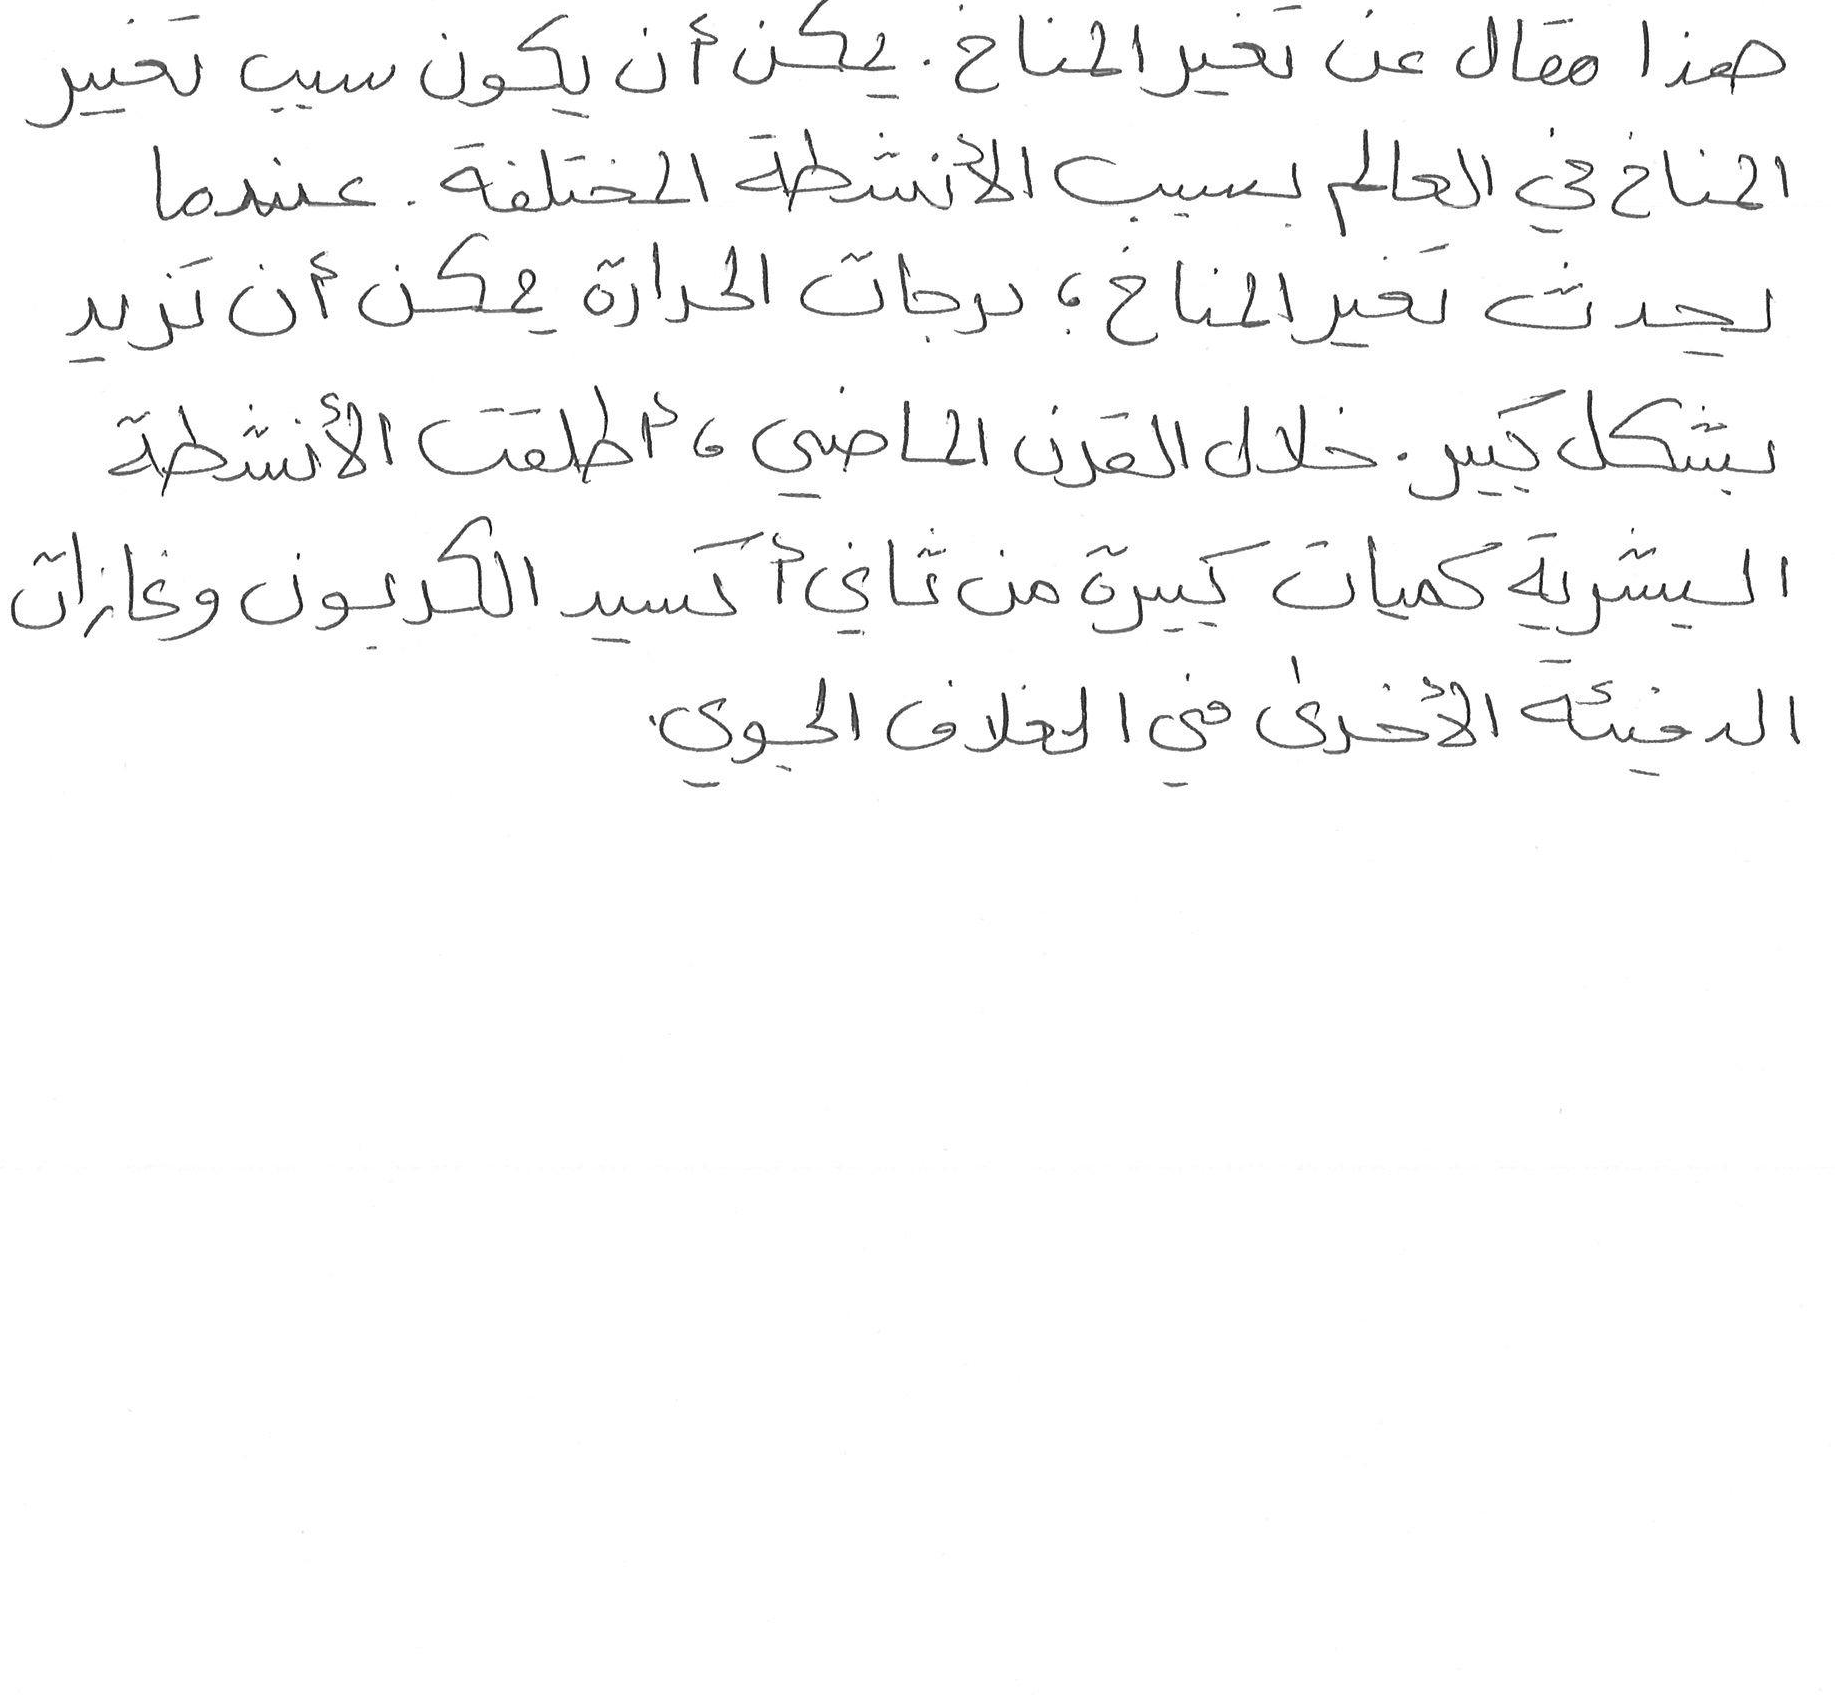 هذا مقال عن تغير المناخ. يمكن أن يكون سبب تغيير
المناخ في العالم بسبب الأنشطة المختلفة. عندما
يحدث تغير المناخ، درجات الحرارة يمكن أن تزيد
بشكل كبير. خلال القرن الماضي، أطلقت الأنشطة
البشرية كميات كبيرة من ثاني أكسيد الكربون وغازات
الدفيئة الأخرى في الغلاف الجوي.